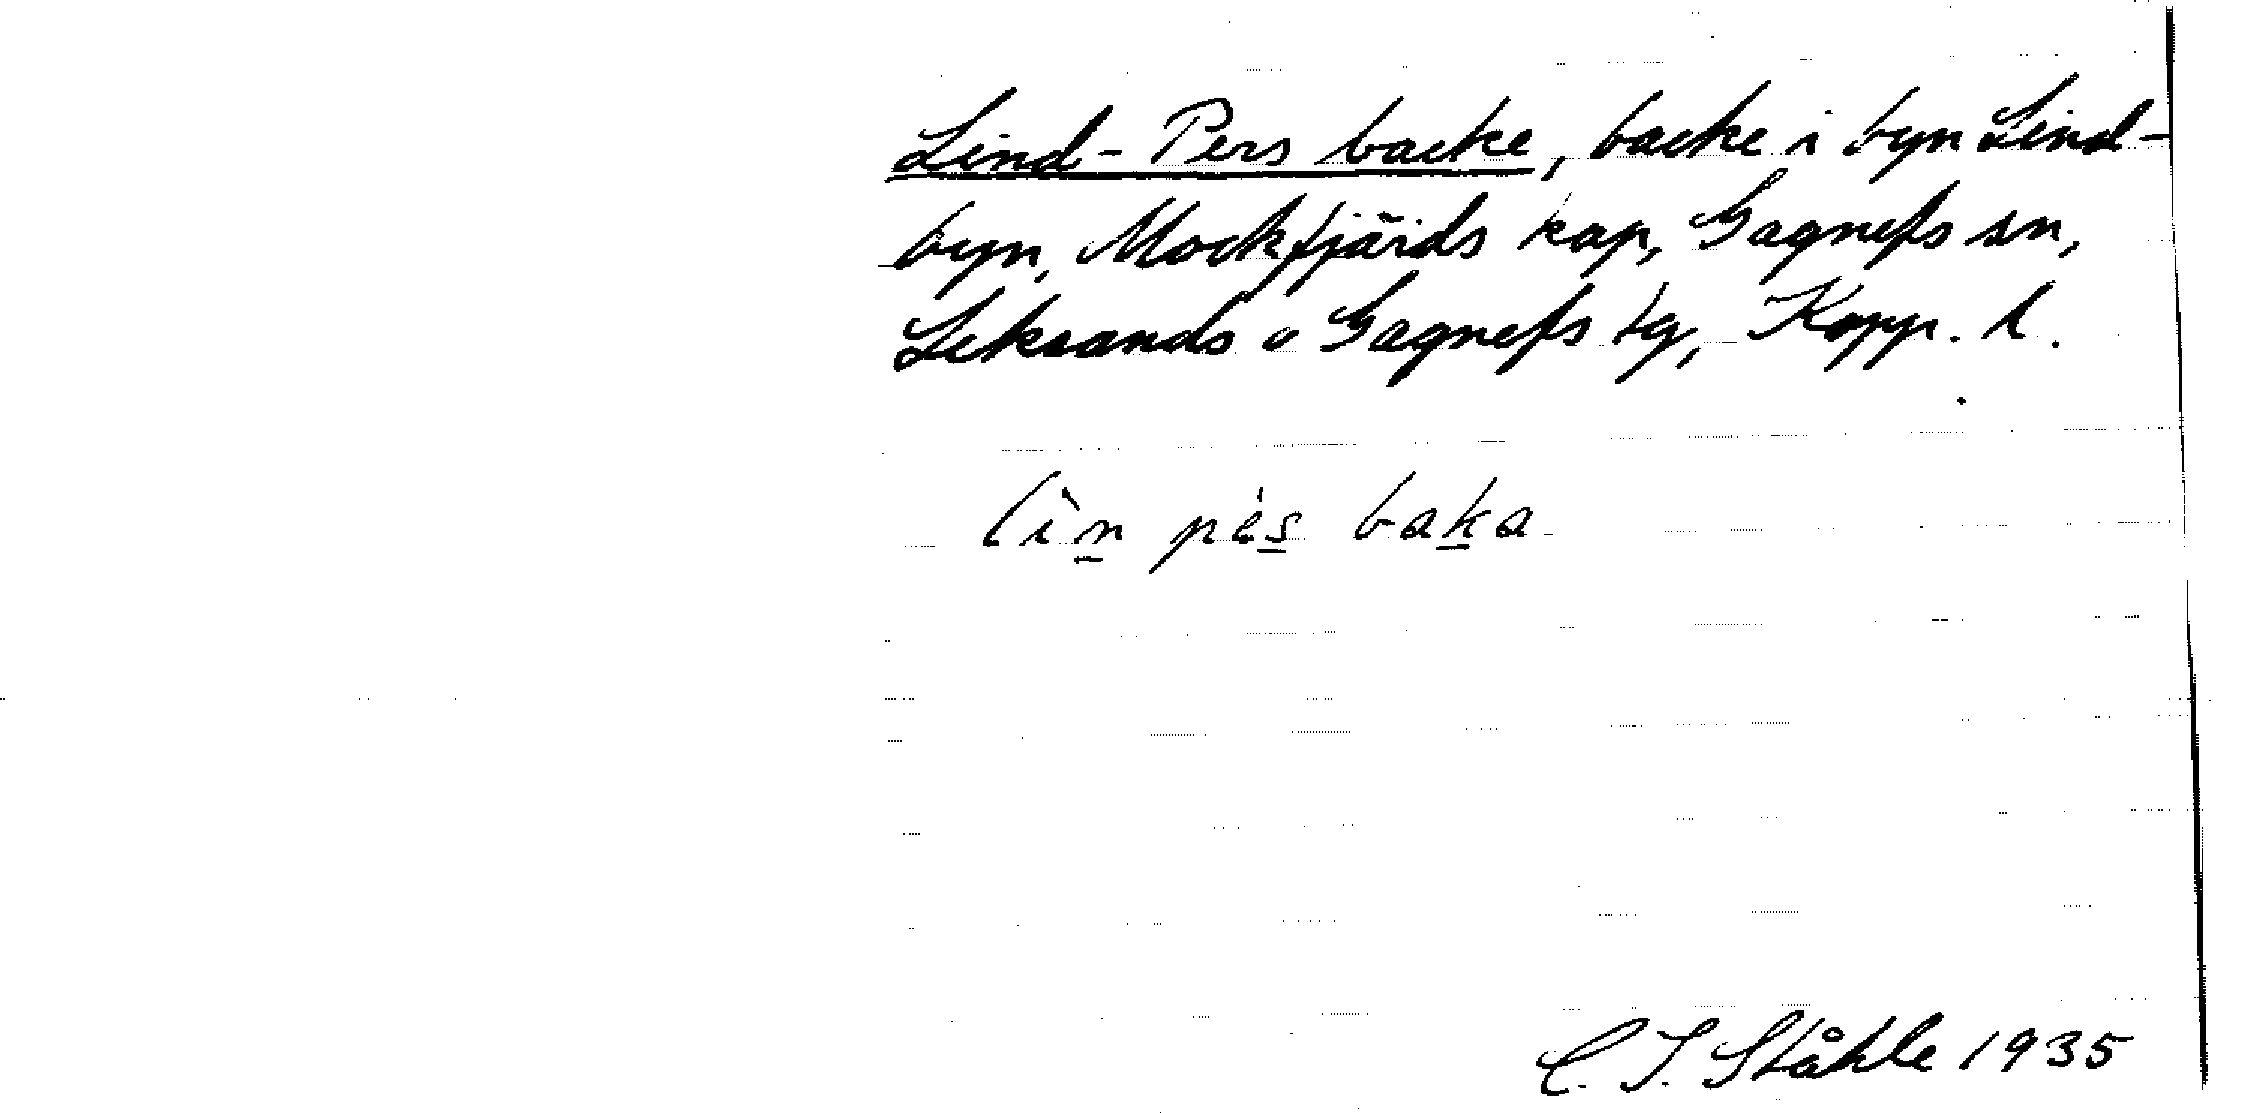 Lind-Pers backe, backe i byn Lind-
byn, Mockfjärds kap, Gagnefs sn,
Leksands o Gagnefs tg, Kopp. l.
lìn pés baka
C. I. Ståhle 1935